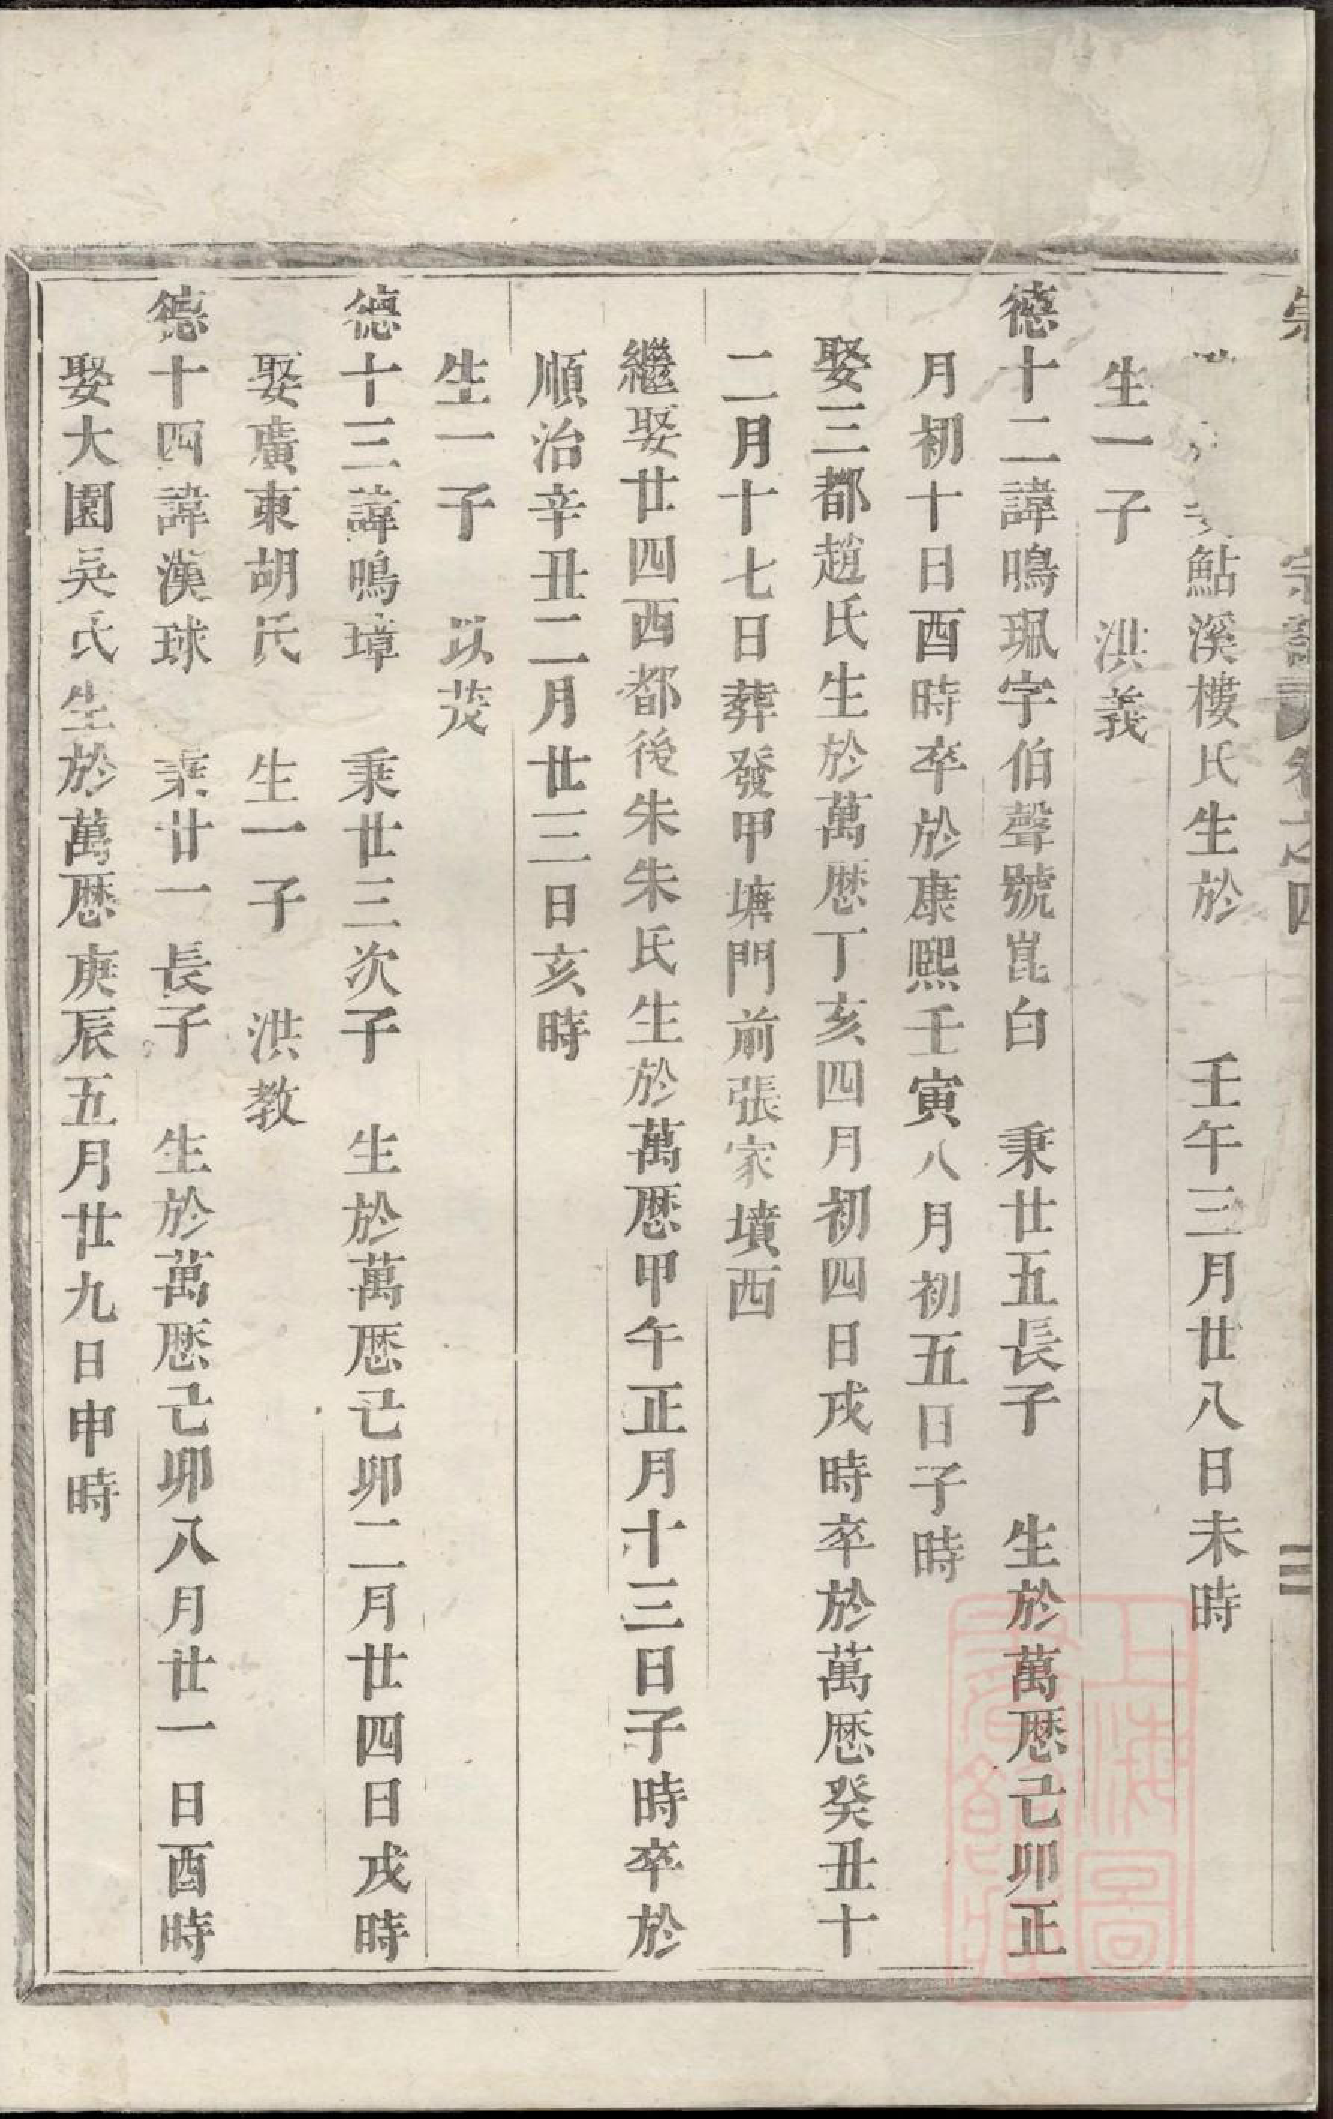 鮎溪樓氏生於　　壬午三月廿八日未時
生一子　洪義
德十二諱鳴珮字伯聲號崑白　秉廿五長子　生於萬歷己卯正
月初十日酉時卒於康熙壬寅八月初五日子時
娶三都趙氏生於萬歷丁亥四月初四日戌時卒於萬歷癸丑十
二月十七日葬發甲塘門前張家墳西
繼娶廿四西都後朱朱氏生於萬歷甲午正月十三日子時卒於
順治辛丑二月廿三日亥時
生一子　以茂
德十三諱鳴璋　秉廿三次子　生於萬歷己卯二月廿四日戌時
娶廣東胡氏　生一子　洪教
德十四諱漢球　秉廿一長子　生於萬歷己卯八月廿一日酉時
娶大園吳氏生於萬歷庚辰五月廿九日申時